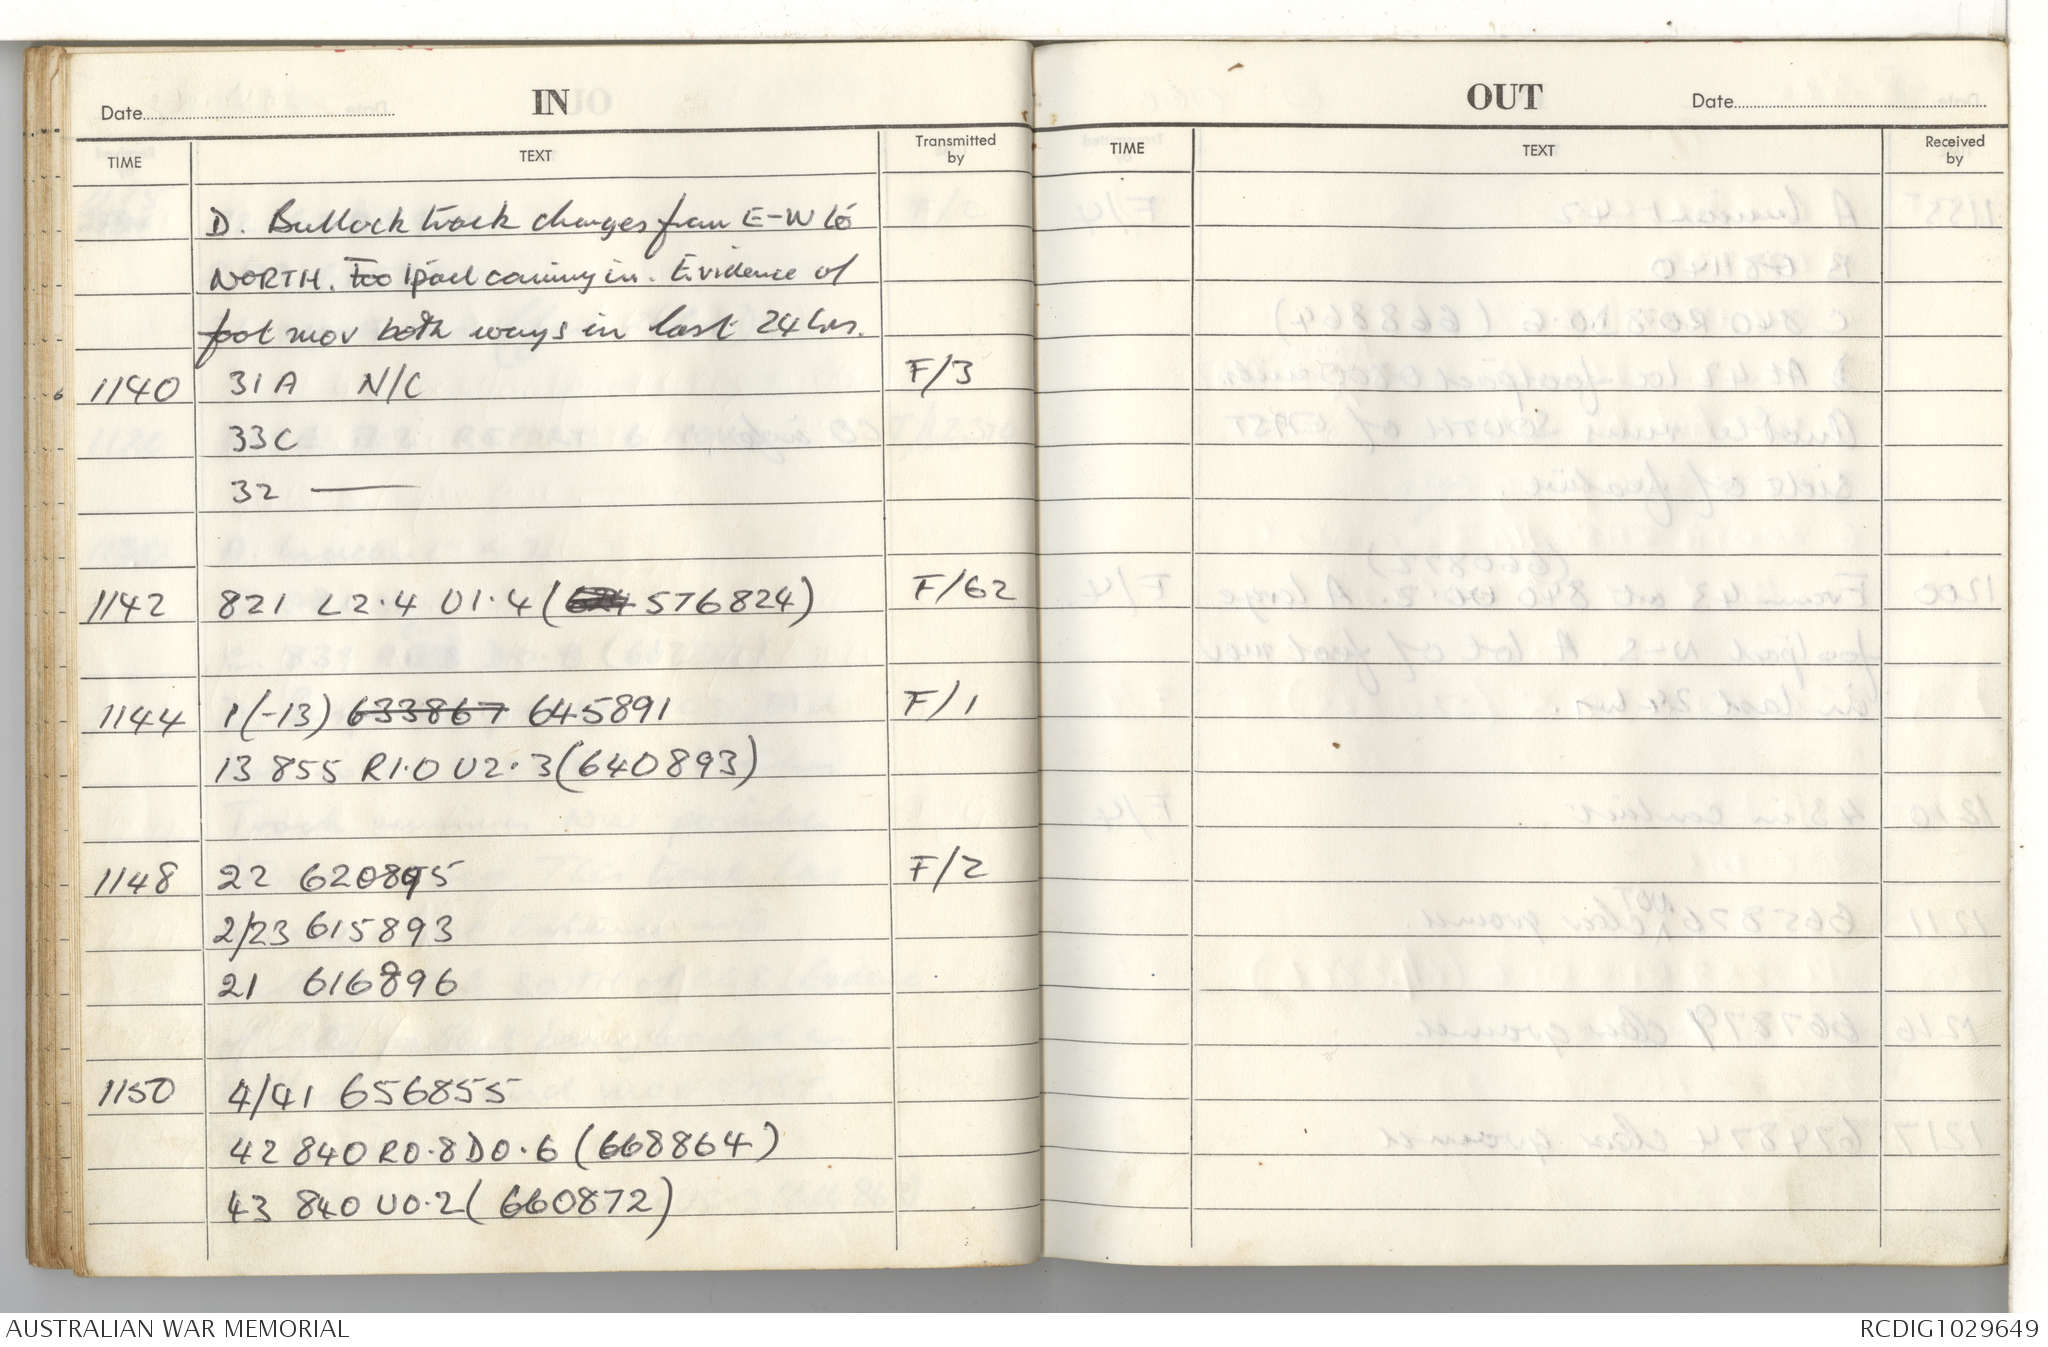 Date
IN
TIME
TEXT
Transmitted by
D. Bullock track changes from E-W to
NORTH. Foo 1pad coming in. Evidence of
foot mov both ways in last 24 hrs.
1140 31A N/C F/3
33C
32 —
1142 821 L2.4 U1.4 ( 576824) F/62
1144 1(-13) 633867 645891 F/1
13 855 R1.0 U2.3 (640893)
1148 22 620895 F/2
2/23 615893
21 616896
1150 4/41 656855
42 840 R0.8 D0.6 (668864)
43 840 U0.2 (660872)
OUT
Date
TIME
TEXT
Received by
AUSTRALIAN WAR MEMORIAL
RCDIG1029649